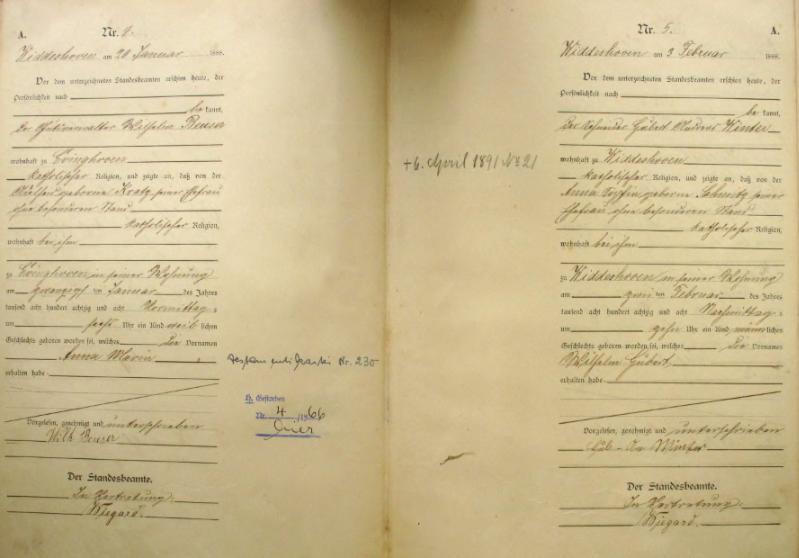 A.
Nr. 4.
Widdeshoven am 20 Januar 1888.
Vor dem unterzeichneten Standesbeamten erschien heute, der
Persönlichkeit nach
bekannt,
der Wilhelm
wohnhaft zu Evinghoven
katholischer Religion, und zeigte an, daß von der
geborene Kratz seiner Ehefrau
ohne besonderen Stand
katholischer Religion,
wohnhaft bei ihm
zu Evinghoven in seiner Wohnung
am zwanzigsten Januar des Jahres
tausend acht hundert achtzig und acht Vormittag
um sechs Uhr ein Kind weiblichen
Geschlechts geboren worden sei, welches die Vornamen
Anna Maria
erhalten habe
Vorgelesen, genehmigt und unterschrieben
Wilh
Der Standesbeamte.
In Vertretung
Wiegard.
Nr. 230
Gestorben
Nr. 4 /1966
+ 6. April 1891 No 21
Nr. 5.
A.
Widdeshoven am 3 Februar 1888.
Vor dem unterzeichneten Standesbeamten erschien heute, der
Persönlichkeit nach
bekannt,
Der Schneider Hubert Andreas Winter
wohnhaft zu Widdeshoven
katholischer Religion, und zeigte an, daß von der
Anna Sophia geborene Schmitz seiner
Ehefrau ohne besonderen Stand
katholischer Religion,
wohnhaft bei ihm
zu Widdeshoven in seiner Wohnung
am zwei ten Februar des Jahres
tausend acht hundert achtzig und acht Nachmittag
um zehn Uhr ein Kind männlichen
Geschlechts geboren worden sei, welches die Vornamen
Wilhelm Hubert
erhalten habe
Vorgelesen, genehmigt und unterschrieben
Hub. An Winter
Der Standesbeamte.
In Vertretung
Wiegard.